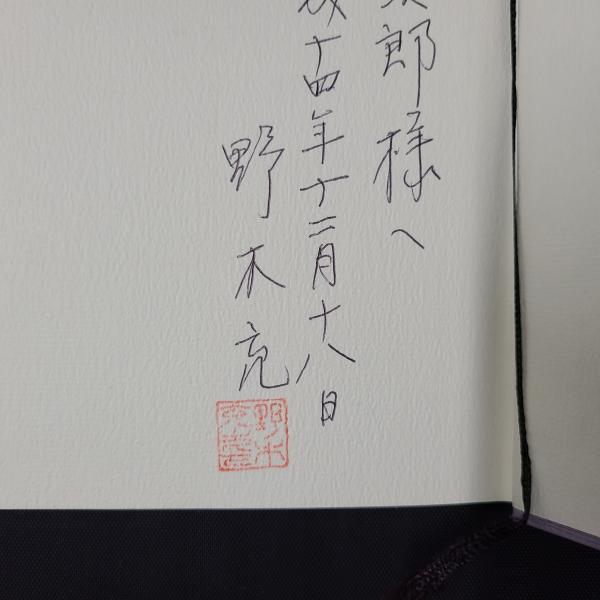 郎様へ
十四年十二月十八日
野木亮
野木